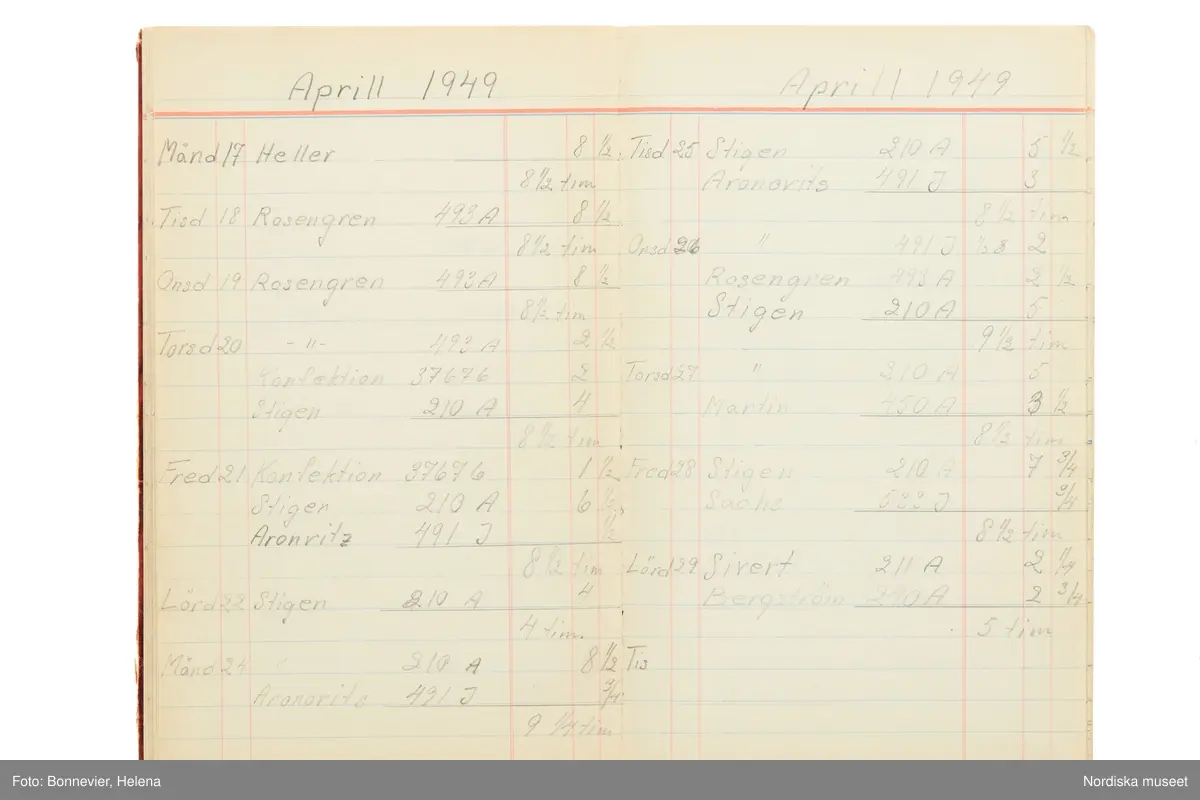 Aprill 1949
Månd 17 Heller 8 1/2
8 1/2 tim
Tisd 18 Rosengren 493 A 8 1/2
8 1/2 tim
Onsd 19 Rosengren 493 A 8 1/2
8 1/2 tim
Torsd 20 -"- 493 A 2 1/2
Konfektion 37676 2
Stigen 210 A 4
8 1/2 tim
Fred 21 Konfektion 37676 1 1/2
Stigen 210 A 6 1/2
Aronvitz 491 J 1/2
8 1/2 tim
Lörd 22 Stigen 210 A 4
4 tim.
Månd 24 " 210 A 8 1/2
Aronovits 491 J 3/4
9 1/4 tim
Aprill 1949
Tisd 25 Stigen 210 A 5 1/2
Aronovits 491 J 3
8 1/2 tim
Onsd 26 " 491 J 2
Rosengren 493 A 2 1/2
Stigen 210 A 5
9 1/2 tim
Torsd 27 " 210 A 5
Martin 450 A 3 1/2
8 1/2 tim
Fred 28 Stigen 210 A 7 3/4
Sachs J 3/4
8 1/2 tim
Lörd 29 Sivert 211 A 2 1/4
Bergström 290 A 2 3/4
5 tim
Tis
Foto: Bonnevier, Helena
Nordiska museet